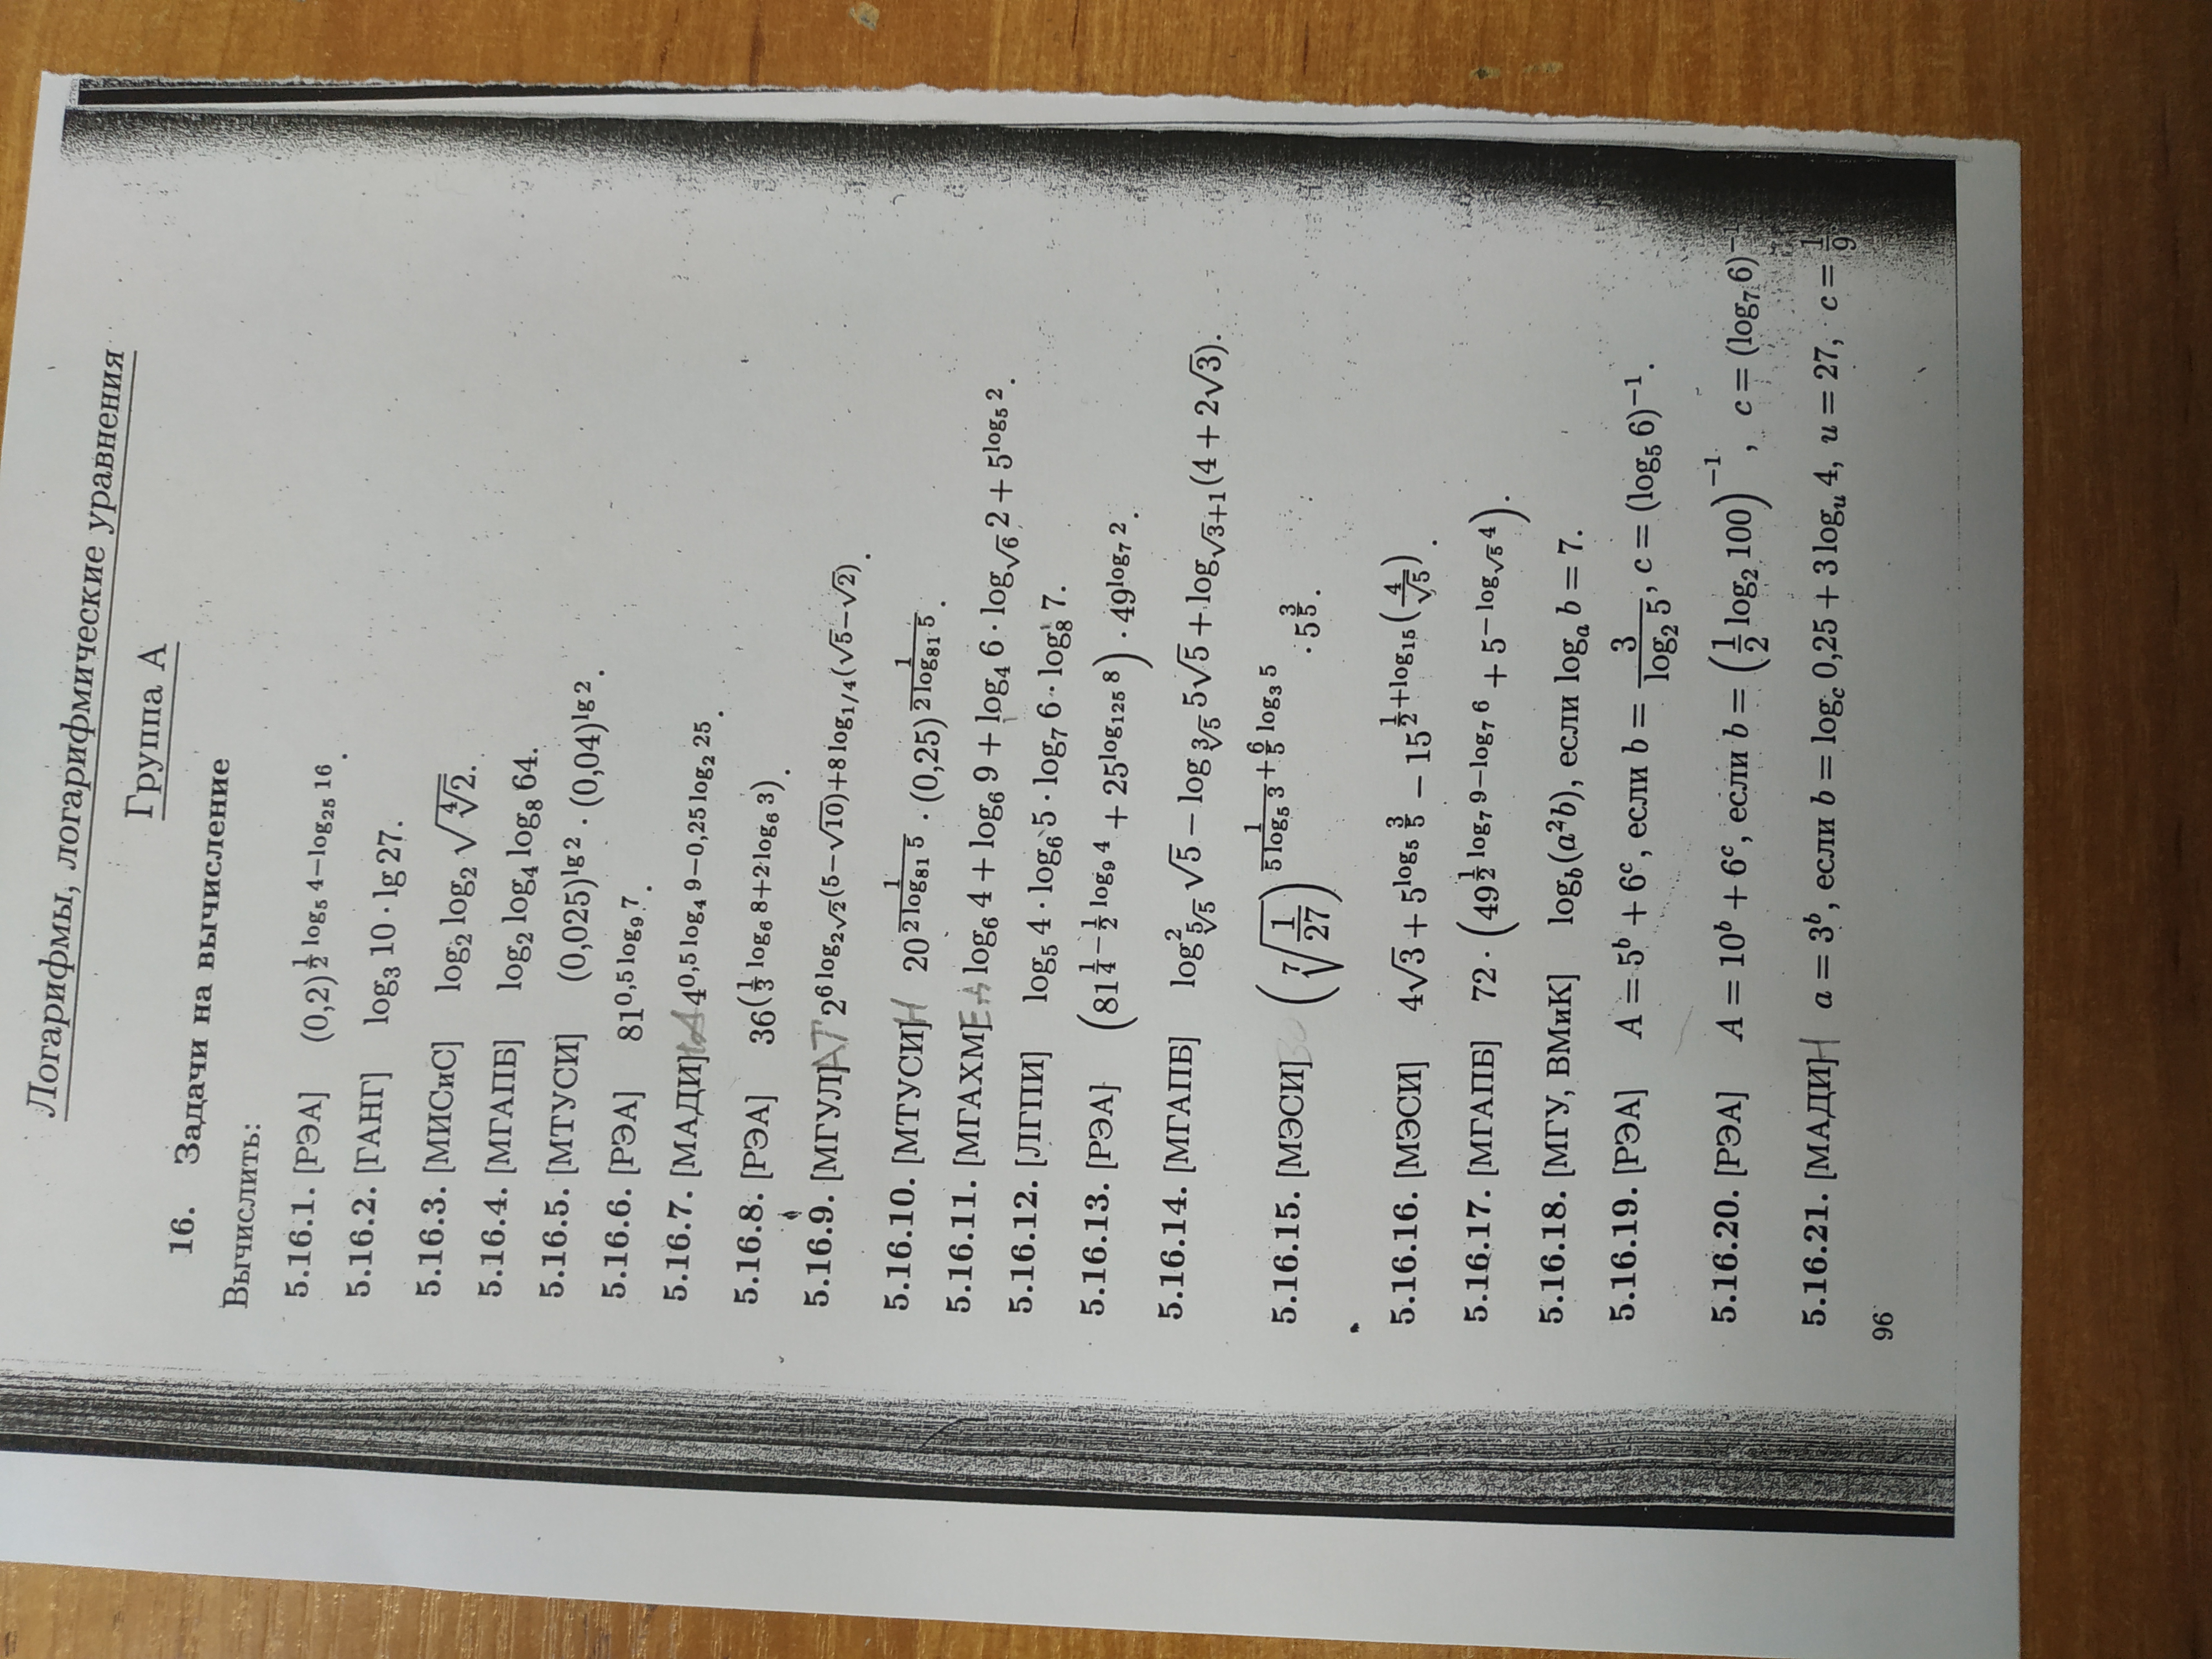 Логарифмы, логарифмические уравнения
Группа А
16. Задачи на вычисление
Вычислить:
5.16.1. [РЭА] (0,2)^{½ log₅ 4−log₂₅ 16}.
5.16.2. [ГАНГ] log₃ 10 · lg 27.
5.16.3. [МИСиС] log₂ log₂ √(⁴√2).
5.16.4. [МГАПБ] log₂ log₄ log₈ 64.
5.16.5. [МТУСИ] (0,025)^{lg 2} · (0,04)^{lg 2}.
5.16.6. [РЭА] 81^{0,5 log₉ 7}.
5.16.7. [МАДИ] 4^{0,5 log₄ 9−0,25 log₂ 25}.
5.16.8. [РЭА] 36^{(⅓ log₆ 8+2 log₆ 3)}.
5.16.9. [МГУЛ] 2^{6 log_{2√2}(5−√10)+8 log_{1/4}(√5−√2)}.
5.16.10. [МТУСИ] 20^{1/(2 log₈₁ 5)} · (0,25)^{1/(2 log₈₁ 5)}.
5.16.11. [МГАХМ] log₆ 4 + log₆ 9 + log₄ 6 · log_{√6} 2 + 5^{log₅ 2}.
5.16.12. [ЛГПИ] log₅ 4 · log₆ 5 · log₇ 6 · log₈ 7.
5.16.13. [РЭА] (81^{¼−½ log₉ 4} + 25^{log₁₂₅ 8}) · 49^{log₇ 2}.
5.16.14. [МГАПБ] log²_{⁵√5} √5 − log_{³√5} 5√5 + log_{√3+1}(4 + 2√3).
5.16.15. [МЭСИ] (⁷√(1/27))^{1/(5 log₅ 3) + 6/5 log₃ 5} · 5^{3/5}.
5.16.16. [МЭСИ] 4√3 + 5^{log₅ 3/5} − 15^{½+log₁₅(4/√5)}.
5.16.17. [МГАПБ] 72 · (49^{½ log₇ 9−log₇ 6} + 5^{−log_{√5} 4}).
5.16.18. [МГУ, ВМиК] log_b(a²b), если log_a b = 7.
5.16.19. [РЭА] A = 5^b + 6^c, если b = 3/(log₂ 5), c = (log₅ 6)^{−1}.
5.16.20. [РЭА] A = 10^b + 6^c, если b = (½ log₂ 100)^{−1}, c = (log₇ 6)^{−1}
5.16.21. [МАДИ] a = 3^b, если b = log_c 0,25 + 3 log_u 4, u = 27, c = 1/9
96